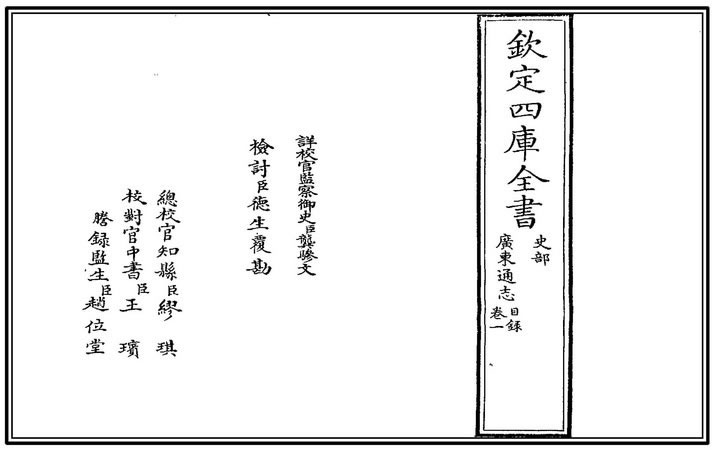 欽定四庫全書
史部
廣東通志
目錄
卷一
詳校官監察御史臣龔驂文
檢討臣德生覆勘
總校官知縣臣繆琪
校對官中書臣王璸
謄錄監生臣趙位堂